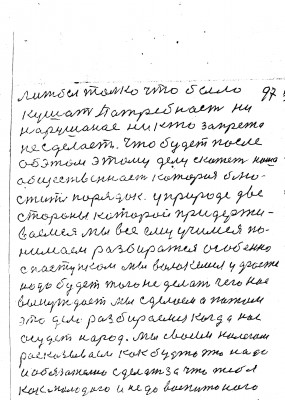 литься только что было 97
кушат Патребнаст ни
нарушаное ни кто запрета
не сделает. Что будет после
об этом этому делу скажет наша
общественнаст которая блю-
стит порядок. у природе две
стораны которой придержи-
ваемся мы все ему учимся по-
нимаем разбиратся особенно
с паступком мы
надо будет того не делат чего нас
вынуждает мы сделаем а патом
это дело разбираем когда нас
судет народ. Мы своем
расказываем как будто это надо
и обязательно сделат за что тебя
как молодого и не до воспитоного